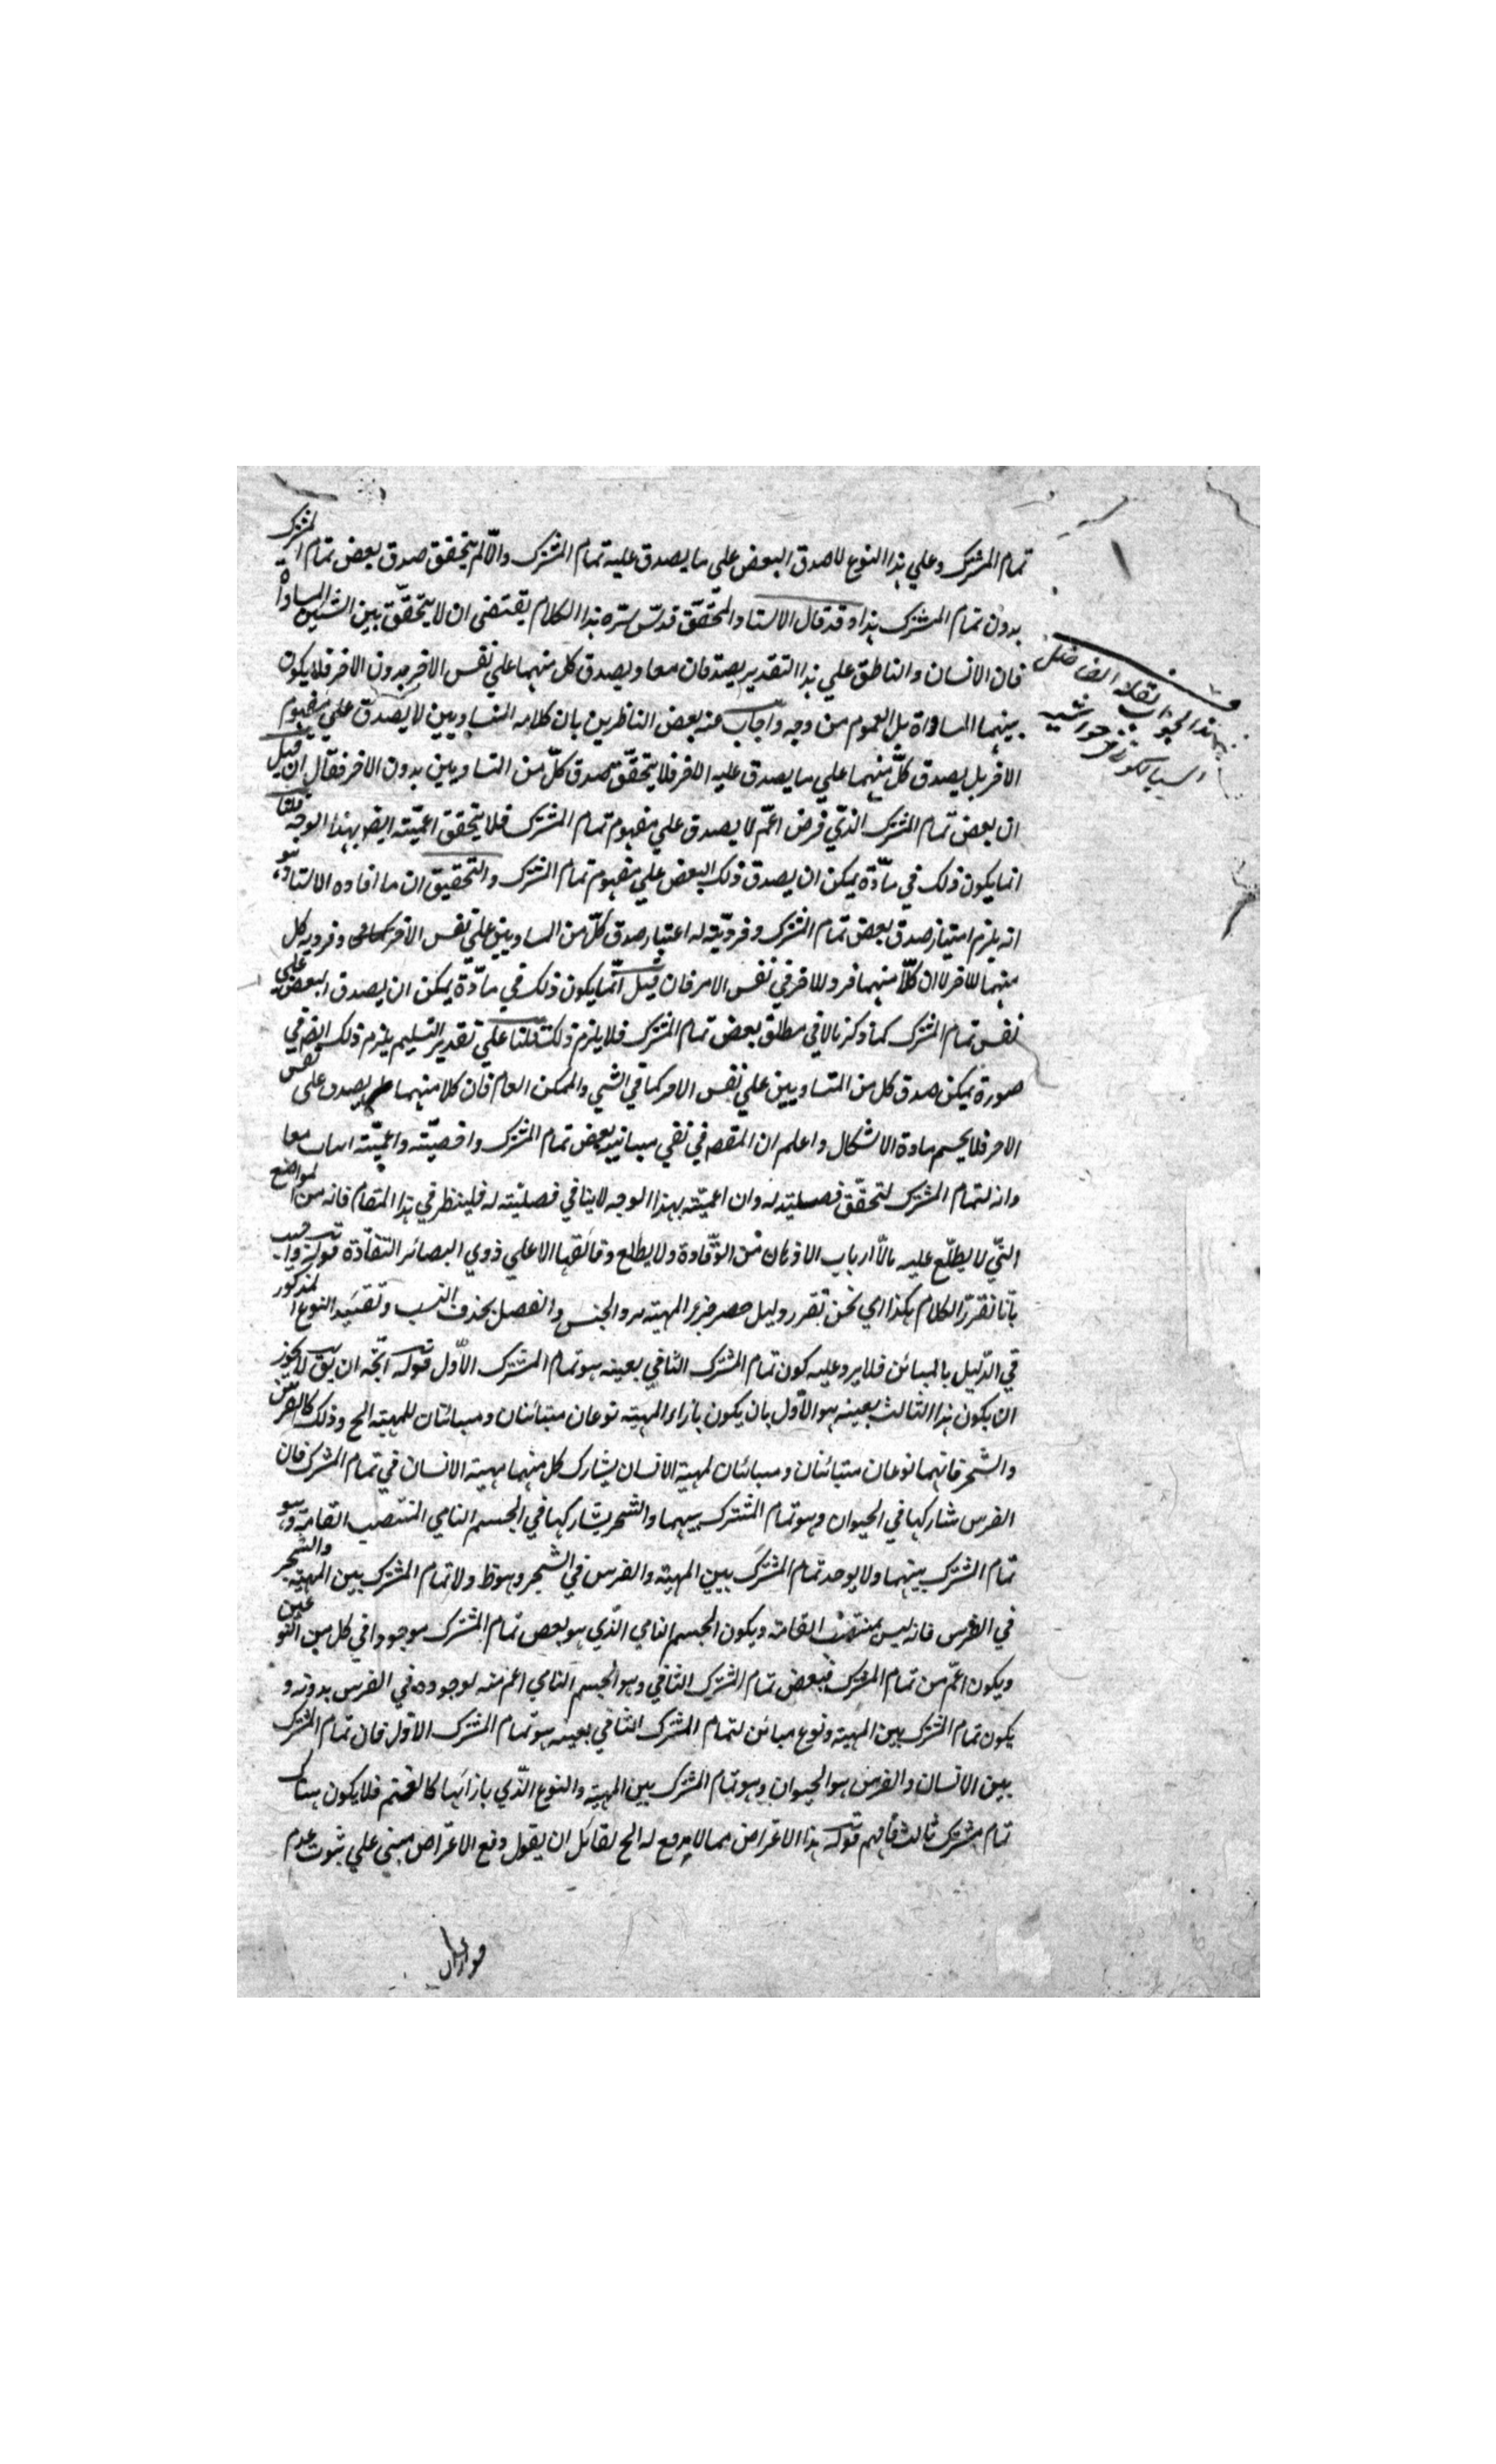 تمام المشترك وعلي هذا النوع لا صدق البعض علي ما يصدق عليه تمام المشترك والّا لم يتحقق صدق بعض تمام المشترك
بدون تمام المشترك هذا وقد قال الاستاد المحقّق قدّس سرّه هذا الكلام يقتضى ان لا يتحقّق بين الشيئين المساواة
فان الانسان والناطق علي هذا التقدير يصدقان معا ويصدق كل منهما علي نفس الاخر بدون الاخر فلا يكون
بينهما المساواة بل العموم من وجه واجاب عنه بعض الناظرين بان كلامه المتساويين لا يصدق علي مفهوم
الاخر بل يصدق كلّ منهما علي ما يصدق عليه الاخر فلا يتحقّق صدق كلّ من التساويين بدون الاخر فقال ان قيل
ان بعض تمام المشترك الذّي فرض اعمّ لا يصدق علي مفهوم تمام المشترك فلا يتحقق اعميّته ايضا بهذا الوجه قلنا
انما يكون ذلك في مادّة يمكن ان يصدق ذلك البعض علي مفهوم تمام المشترك والتحقيق ان ما افاده الاستاد هو
انه يلزم امتياز صدق بعض تمام المشترك وفرديّته له اعتبار صدق كلّ من المساويين علي نفس الاخر وفرديه كل
منهما للاخر لا ان كلّا منهما فرد للاخر في نفس الامر فان قيل انّما يكون ذلك في مادّة يمكن ان يصدق البعض علي
نفس تمام المشترك كما ذكرنا لا في مطلق بعض تمام المشترك فلا يلزم ذلك قلنا علي تقدير التسليم يلزم ذلك ايضا في
صورة يمكن صدق كل من المتساويين علي نفس الامر كما في الشي والممكن العام فان كلا منهما يصدق على نفس
الاخر فلا يحسم مادة الاشكال واعلم ان المقصد في نفي مباينيه بعض تمام المشترك واخصيّته واعميّته معا
وانه لتمام المشترك لتحقّق فصليته له وان اعميّته بهذا الوجه لا ينافي فصليّته له فلينظر في هذا المقام فانه من المواضع
التيّ لا يطلّع عليه الّا ارباب الاذهان من الوقّادة ولا يطلع دقائقها الا علي ذوي البصائر النقّادة قوله
بانّا نقرّر الكلام هكذا اي نحن نقرر دليل حصر جزء المهيّه في الجنس والفصل بحذف النسب وتقييد النوع المذكور
في الدّليل بالمباين فلا يرد عليه كون تمام المشترك الثاني بعينه هو تمام المشترك الاّول قوله اتجّه ان يق لا يجوز
ان يكون هذا الثالث بعينه هو الاّول بان يكون بازاء المهيته نوعان متباينان ومباينان للمهيته الخ وذلك كالفرس
والشجر فانهما نوعان متباينان ومباينان لمهيته الانسان يشارك كل منهما مهيته الانسان في تمام المشترك فان
الفرس شاركها في الحيوان وهو تمام المشترك بينهما والشجر يشاركها في الجسم النامي المنتصب القامة وهو
تمام المشترك بينهما ولا يوجد تمام المشترك بين المهيته والفرس في الشجر وهو ظ ولا تمام المشترك بين المهيته والشجر
في الفرس فانه ليس بمنتصب القامته ويكون الجسم النامي الذّي هو بعض تمام المشترك موجودا في كل من النوعين
ويكون اعّم من تمام المشترك فبعض تمام المشترك الثاني وهو الجسم النامي اعم منه لوجوده في الفرس بدونه و
يكون تمام المشترك بين المهيته ونوع مباين لتمام المشترك الثاني بعينه هو تمام المشترك الاوّل فان تمام المشترك
بين الانسان والفرس هو الحيوان وهو تمام المشترك بين المهيته والنوع الذّي بازائها كالغنم فلا يكون هناك
تمام مشترك ثالث فافهم قوله هذا الاعتراض مما لا مدفع له الخ لقائل ان يقول دفع الاعتراض مبني علي ثبوت عدم
هذا الجواب نقله الفاضل
السيالكوتي في حواشيه